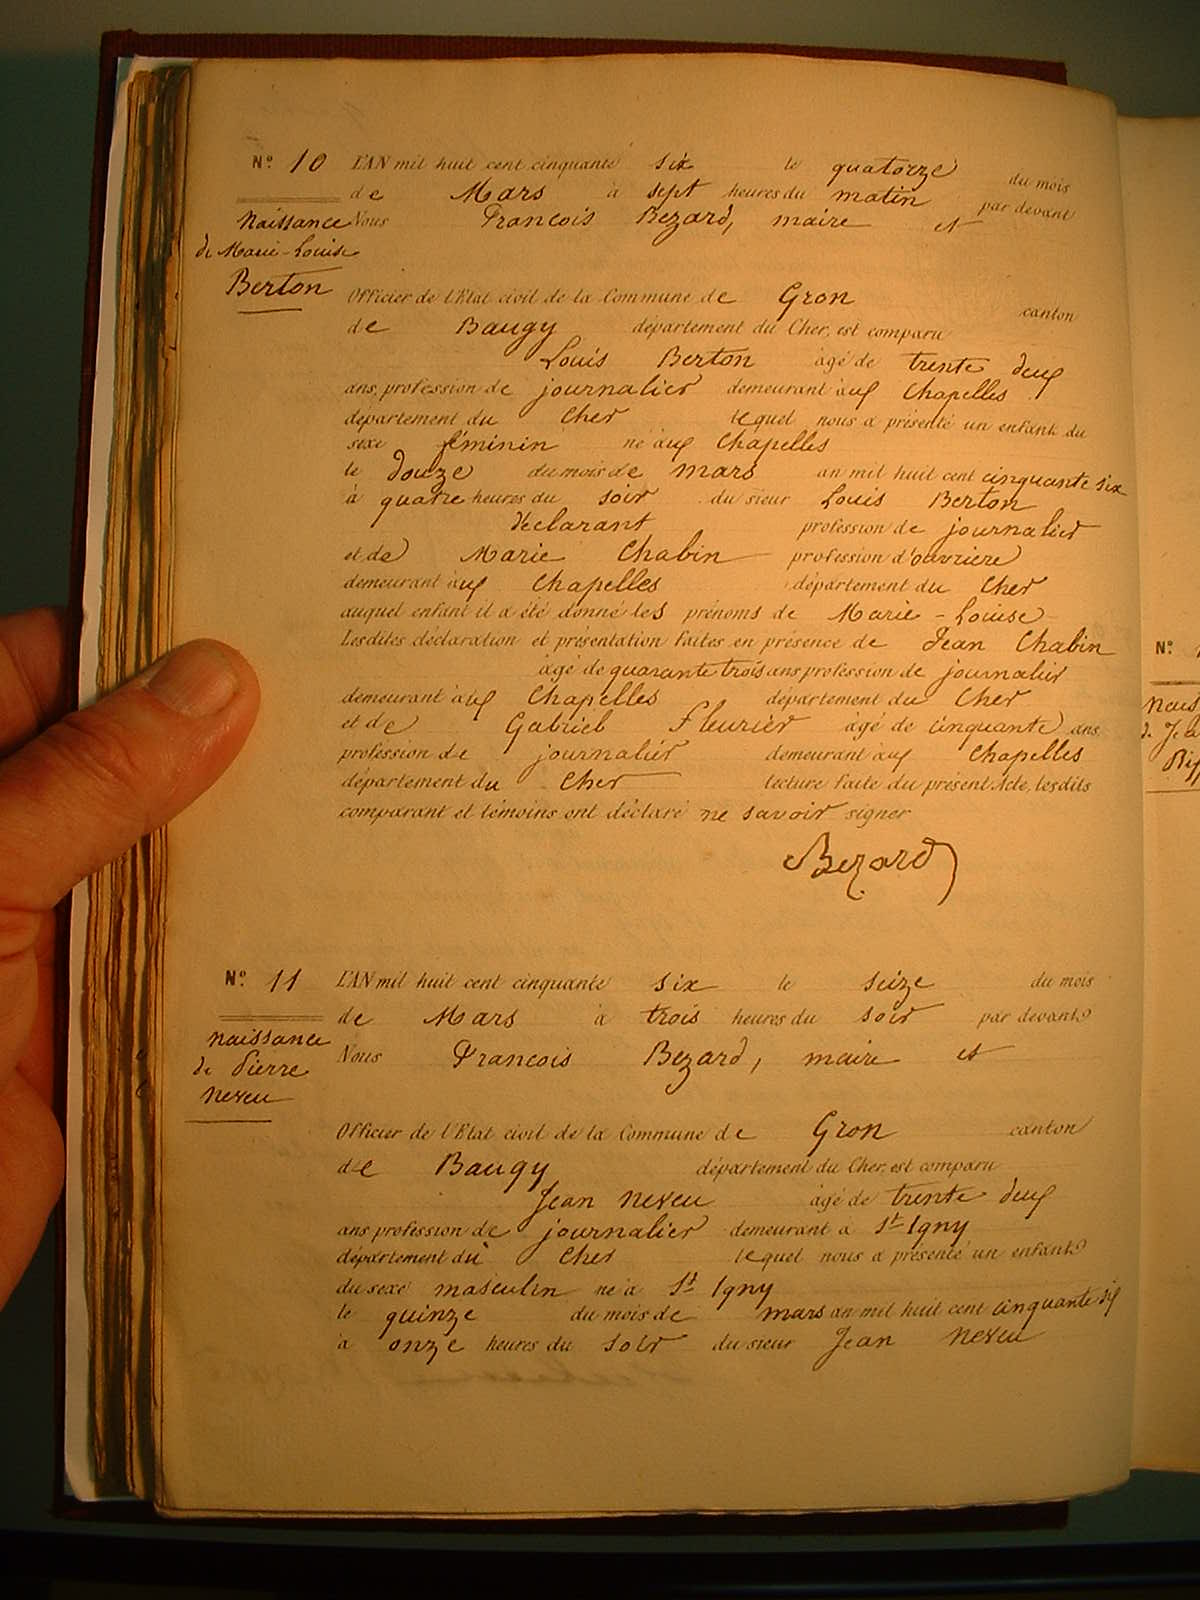 N° 10 L'AN mil huit cent cinquante six le quatorze du mois
de Mars à sept heures du matin par devant
Naissance Nous Francois Bezard, maire et
de Marie-Louise
Berton Officier de l'Etat civil de la Commune de Gron canton
de Baugy département du Cher, est comparu
Louis Berton âgé de trente deux
ans, profession de journalier demeurant aux Chapelles
département du Cher lequel nous a présenté un enfant du
sexe féminin né aux Chapelles
le douze du mois de mars an mil huit cent cinquante six
à quatre heures du soir du sieur Louis Berton
déclarant profession de journalier
et de Marie Chabin profession d'ouvrière
demeurant aux Chapelles département du Cher
auquel enfant il a été donné les prénoms de Marie-Louise
Lesdites déclaration et présentation faites en présence de Jean Chabin
âgé de quarante trois ans profession de journalier
demeurant aux Chapelles département du Cher
et de Gabriel Fleurier âgé de cinquante ans
profession de journalier demeurant aux Chapelles
département du Cher lecture faite du présent Acte, lesdits
comparant et témoins ont déclaré ne savoir signer
Bezard
N° 11 L'AN mil huit cent cinquante six le seize du mois
de Mars à trois heures du soir par devant
naissance
de Pierre
neveu
Nous Francois Bezard, maire et
Officier de l'Etat civil de la Commune de Gron canton
de Baugy département du Cher, est comparu
Jean neveu âgé de trente deux
ans profession de journalier demeurant à St Igny
département du Cher lequel nous a présenté un enfant
du sexe masculin né à St Igny
le quinze du mois de mars an mil huit cent cinquante six
à onze heures du soir du sieur Jean neveu
N°